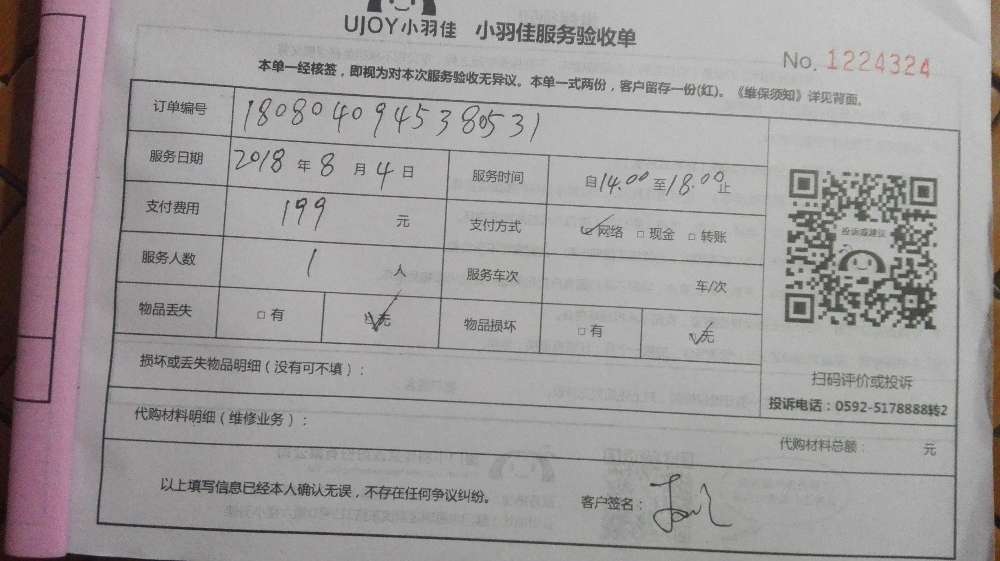 UJOY小羽佳 小羽佳服务验收单
No. 1224324
本单一经核签，即视为对本次服务验收无异议。本单一式两份，客户留存一份(红)。《维保须知》详见背面。
订单编号 18080409453805​31
服务日期 2018年8月4日 服务时间 自14.00至18.00止
支付费用 199 元 支付方式 ☑网络 □现金 □转账
服务人数 1 人 服务车次 车/次
物品丢失 □有 ☑无 物品损坏 □有 ☑无
投诉或建议
扫码评价或投诉
投诉电话：0592-5178888转2
损坏或丢失物品明细（没有可不填）：
代购材料明细（维修业务）：
代购材料总额： 元
以上填写信息已经本人确认无误，不存在任何争议纠纷。
客户签名：